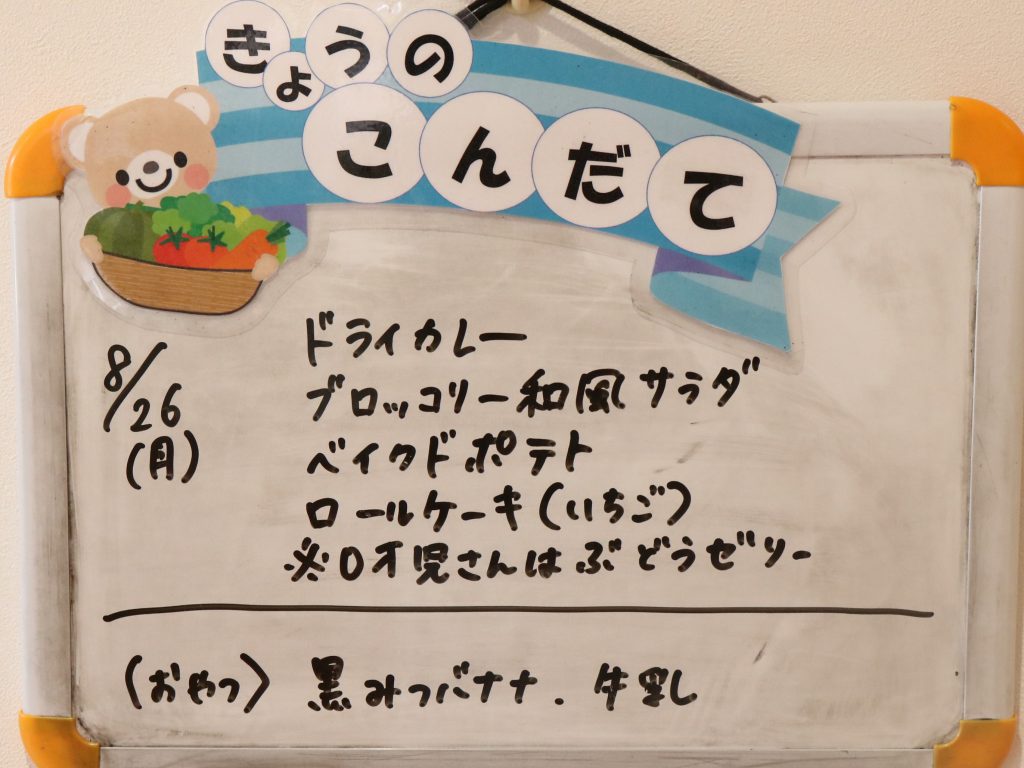 きょうの
こんだて
8/26
(月)
ドライカレー
ブロッコリー和風サラダ
ベイクドポテト
ロールケーキ(いちご)
※0才児さんはぶどうゼリー
(おやつ) 黒みつバナナ、牛乳